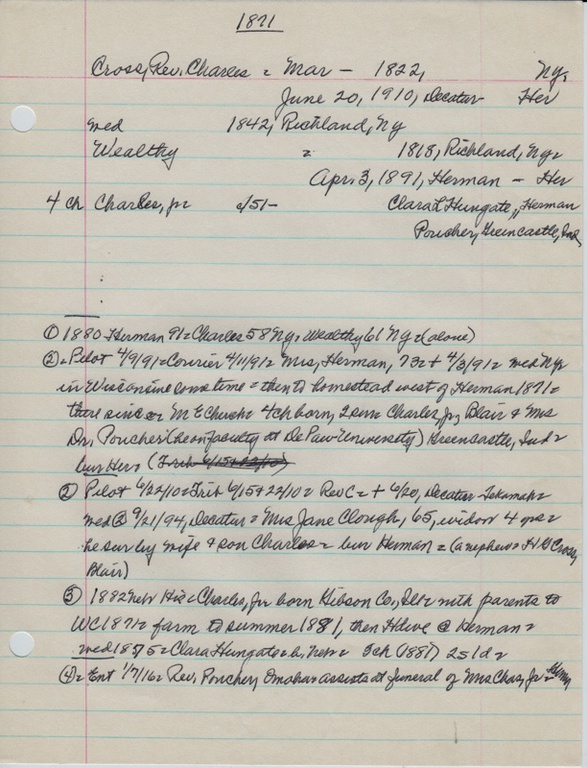 1871
Cross, Rev. Charles = Mar - 1822, Ny.
June 20, 1910, Decatur Her
med 1842, Richland, Ny
Wealthy = 1818, Richland, Ny=
Apr. 3, 1891, Herman - Her
4 ch Charles, jr c/51- Clara L Hungate, Herman
Poucher, Greencastle, Ind,
① 1880 Herman 91= Charles 58 Ny= Wealthy 61 Ny= (alone)
②= Pilot 4/9/91= Courier 4/11/91= Mrs, Herman, 73= + 4/3/91= med Ny
in Wisconsin some time = then to homestead west of Herman 1871=
there since = M E Church= 4ch born, 2 surv Charles, jr, Blair & Mrs
Dr. Poucher (he on faculty at De Pauw University) Greencastle, Ind=
bur Her=
② Pilot 6/22/10= Trib 6/15+22/10= Rev C= + 6/20, Decatur- Tekamah=
med② 9/21/94, Decatur= Mrs Jane Clough, 65, widow 4
he sur by wife & son Charles= bur Herman = (a nephew= Cross,
Blair)
③ 1882 Charles, Jr born Gibson Co, Ill= with parents to
WC 1871= farm to summer 1881, then Hdwe @ Herman=
med 1875= Clara Hungate= b. 3ch (1881) 2s 1d=
④= Ent 1/7/16= Rev. Poucher, Omaha= assists at funeral of Mrs Chas, Jr=